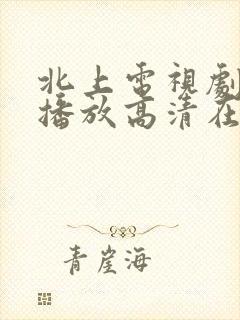 北上電視劇
播放高清在
青崖海